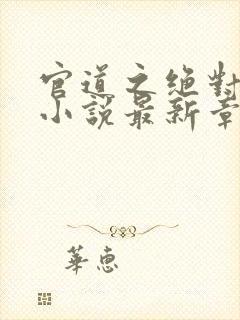 官道之绝對
小說最新章
華惠